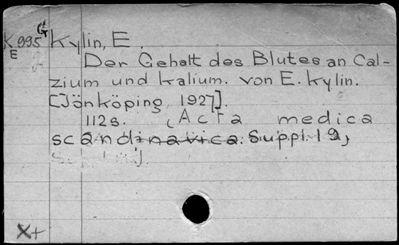 K 995 G Kylin, E.
E
Der Gehalt des Blutes an Cal-
zium und Kalium. von E. Kylin.
[Jönköping, 1927].
112s. (Acta medica
scandinavica. Suppl. 19)
X+